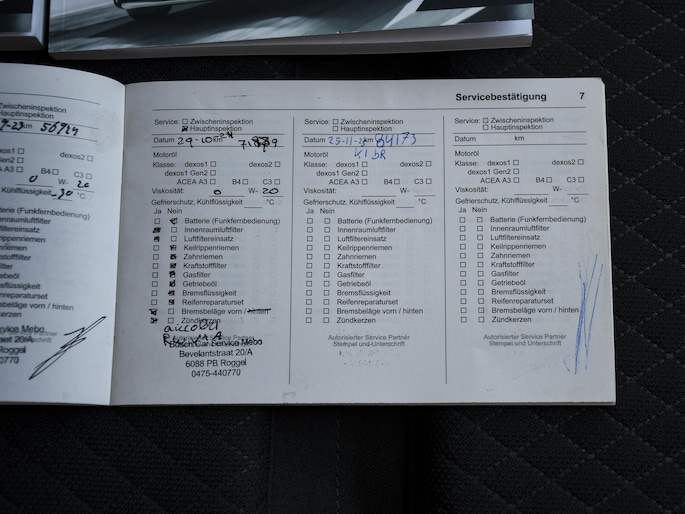 Servicebestätigung 7
Zwischeninspektion
Hauptinspektion
km 56924
dexos1 ☐ dexos2 ☐
Gen2 ☐
A3 ☐ B4 ☐ C3 ☐
0 W- 20
Kühlflüssigkeit -30 °C
(Funkfernbedienung)
Innenraumluftfilter
Luftfiltereinsatz
Keilrippenriemen
Zahnriemen
Kraftstofffilter
Gasfilter
Getriebeöl
Bremsflüssigkeit
Reifenreparaturset
Bremsbeläge vorn / hinten
Zündkerzen
Service Mebo
20/A
Roggel
Service: ☐ Zwischeninspektion
☒ Hauptinspektion
Datum 29-10-24 km
Motoröl
Klasse: dexos1 ☐ dexos2 ☐
dexos1 Gen2 ☐
ACEA A3 ☐ B4 ☐ C3 ☐
Viskosität: 0 W- 20
Gefrierschutz, Kühlflüssigkeit °C
Ja Nein
Batterie (Funkfernbedienung)
Innenraumluftfilter
Luftfiltereinsatz
Keilrippenriemen
Zahnriemen
Kraftstofffilter
Gasfilter
Getriebeöl
Bremsflüssigkeit
Reifenreparaturset
Bremsbeläge vorn / hinten
Zündkerzen
airco
Bosch Car Service Mebo
Bevelantstraat 20/A
6088 PB Roggel
0475-440770
Service: ☐ Zwischeninspektion
☐ Hauptinspektion
Datum 25-11- km 84173
Motoröl
Klasse: dexos1 ☐ dexos2 ☐
dexos1 Gen2 ☐
ACEA A3 ☐ B4 ☐ C3 ☐
Viskosität: W-
Gefrierschutz, Kühlflüssigkeit °C
Ja Nein
☐ ☐ Batterie (Funkfernbedienung)
☐ ☐ Innenraumluftfilter
☐ ☐ Luftfiltereinsatz
☐ ☐ Keilrippenriemen
☐ ☐ Zahnriemen
☐ ☐ Kraftstofffilter
☐ ☐ Gasfilter
☐ ☐ Getriebeöl
☐ ☐ Bremsflüssigkeit
☐ ☐ Reifenreparaturset
☐ ☐ Bremsbeläge vorn / hinten
☐ ☐ Zündkerzen
Autorisierter Service Partner
Stempel und Unterschrift
Service: ☐ Zwischeninspektion
☐ Hauptinspektion
Datum km
Motoröl
Klasse: dexos1 ☐ dexos2 ☐
dexos1 Gen2 ☐
ACEA A3 ☐ B4 ☐ C3 ☐
Viskosität: W-
Gefrierschutz, Kühlflüssigkeit °C
Ja Nein
☐ ☐ Batterie (Funkfernbedienung)
☐ ☐ Innenraumluftfilter
☐ ☐ Luftfiltereinsatz
☐ ☐ Keilrippenriemen
☐ ☐ Zahnriemen
☐ ☐ Kraftstofffilter
☐ ☐ Gasfilter
☐ ☐ Getriebeöl
☐ ☐ Bremsflüssigkeit
☐ ☐ Reifenreparaturset
☐ ☐ Bremsbeläge vorn / hinten
☐ ☐ Zündkerzen
Autorisierter Service Partner
Stempel und Unterschrift